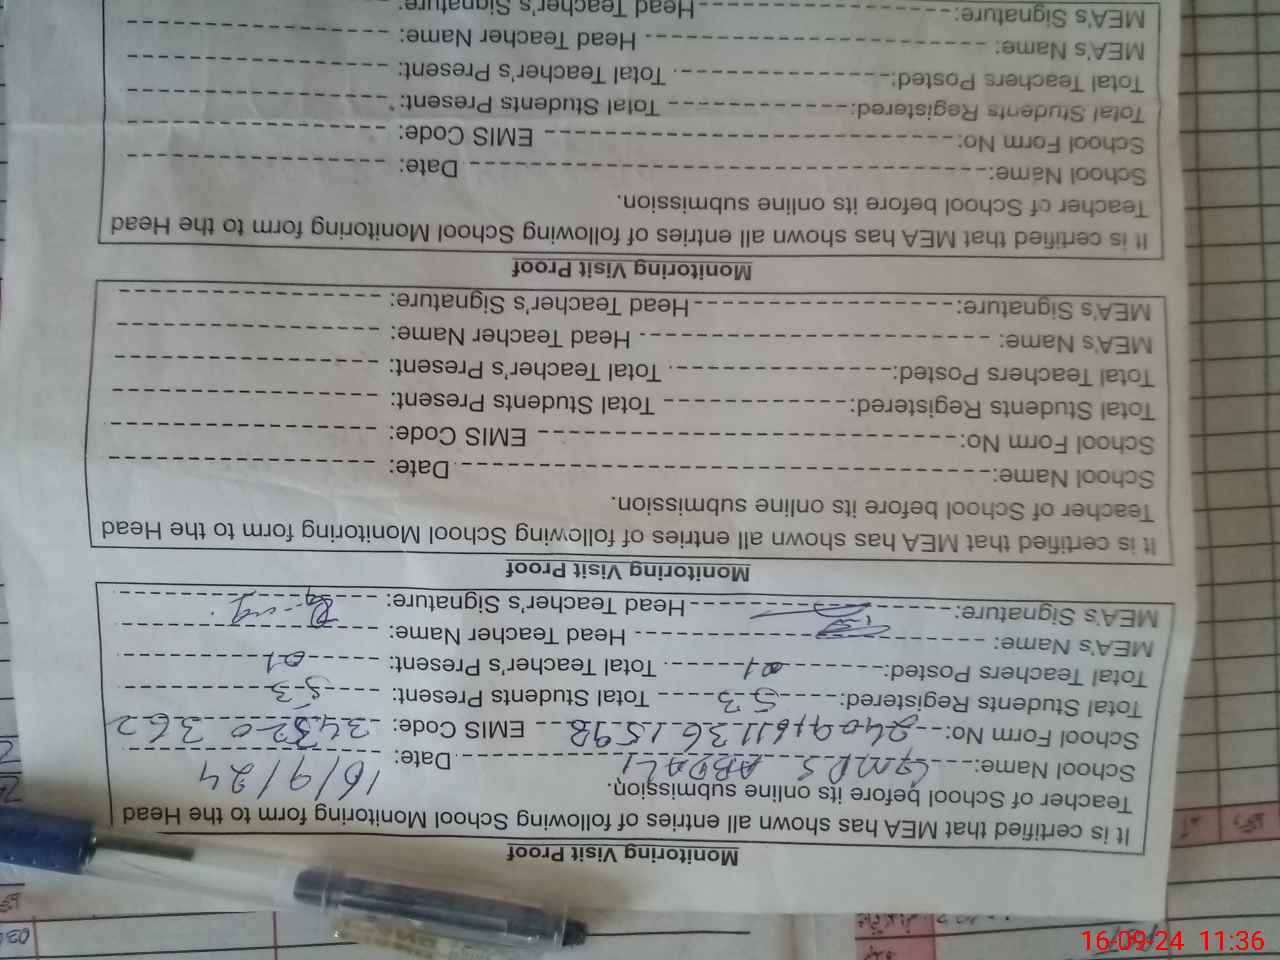 Monitoring Visit Proof
It is certified that MEA has shown all entries of following School Monitoring form to the Head
Teacher of School before its online submission.
School Name: GMPS ABDALI Date: 16/9/24
School Form No: EMIS Code: 34520362
Total Students Registered: 53 Total Students Present: 53
Total Teachers Posted: 01 Total Teacher's Present: 01
MEA's Name: Head Teacher Name:
MEA's Signature: Head Teacher's Signature:
Monitoring Visit Proof
It is certified that MEA has shown all entries of following School Monitoring form to the Head
Teacher of School before its online submission.
School Name: Date:
School Form No: EMIS Code:
Total Students Registered: Total Students Present:
Total Teachers Posted: Total Teacher's Present:
MEA's Name: Head Teacher Name:
MEA's Signature: Head Teacher's Signature:
Monitoring Visit Proof
It is certified that MEA has shown all entries of following School Monitoring form to the Head
Teacher of School before its online submission.
School Name: Date:
School Form No: EMIS Code:
Total Students Registered: Total Students Present:
Total Teachers Posted: Total Teacher's Present:
MEA's Name: Head Teacher Name:
MEA's Signature: Head Teacher's Signature:
16-09-24 11:36